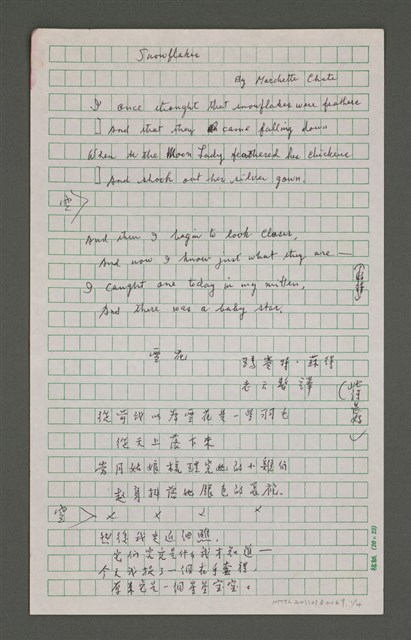 Snowflakes
By Marchette Chute
I once thought that snowflakes were feathers
And that they came falling down
When the Moon Lady feathered her chickens
And shook out her silver gown.
空
And then I began to look closer,
And now I know just what they are —
I caught one today in my mitten,
And there was a baby star.
雪花
瑪賽特·蘇特
譯
從前我以為雪花是一些羽毛
從天上落下來
當月姑娘梳理完她的小雞們
起身抖落她銀色的長袍。
空
× × × ×
我後來更近細瞧,
它們究竟是什么我才知道—
今天我捉了一個在手套裡,
原來它是一個星星宝宝。